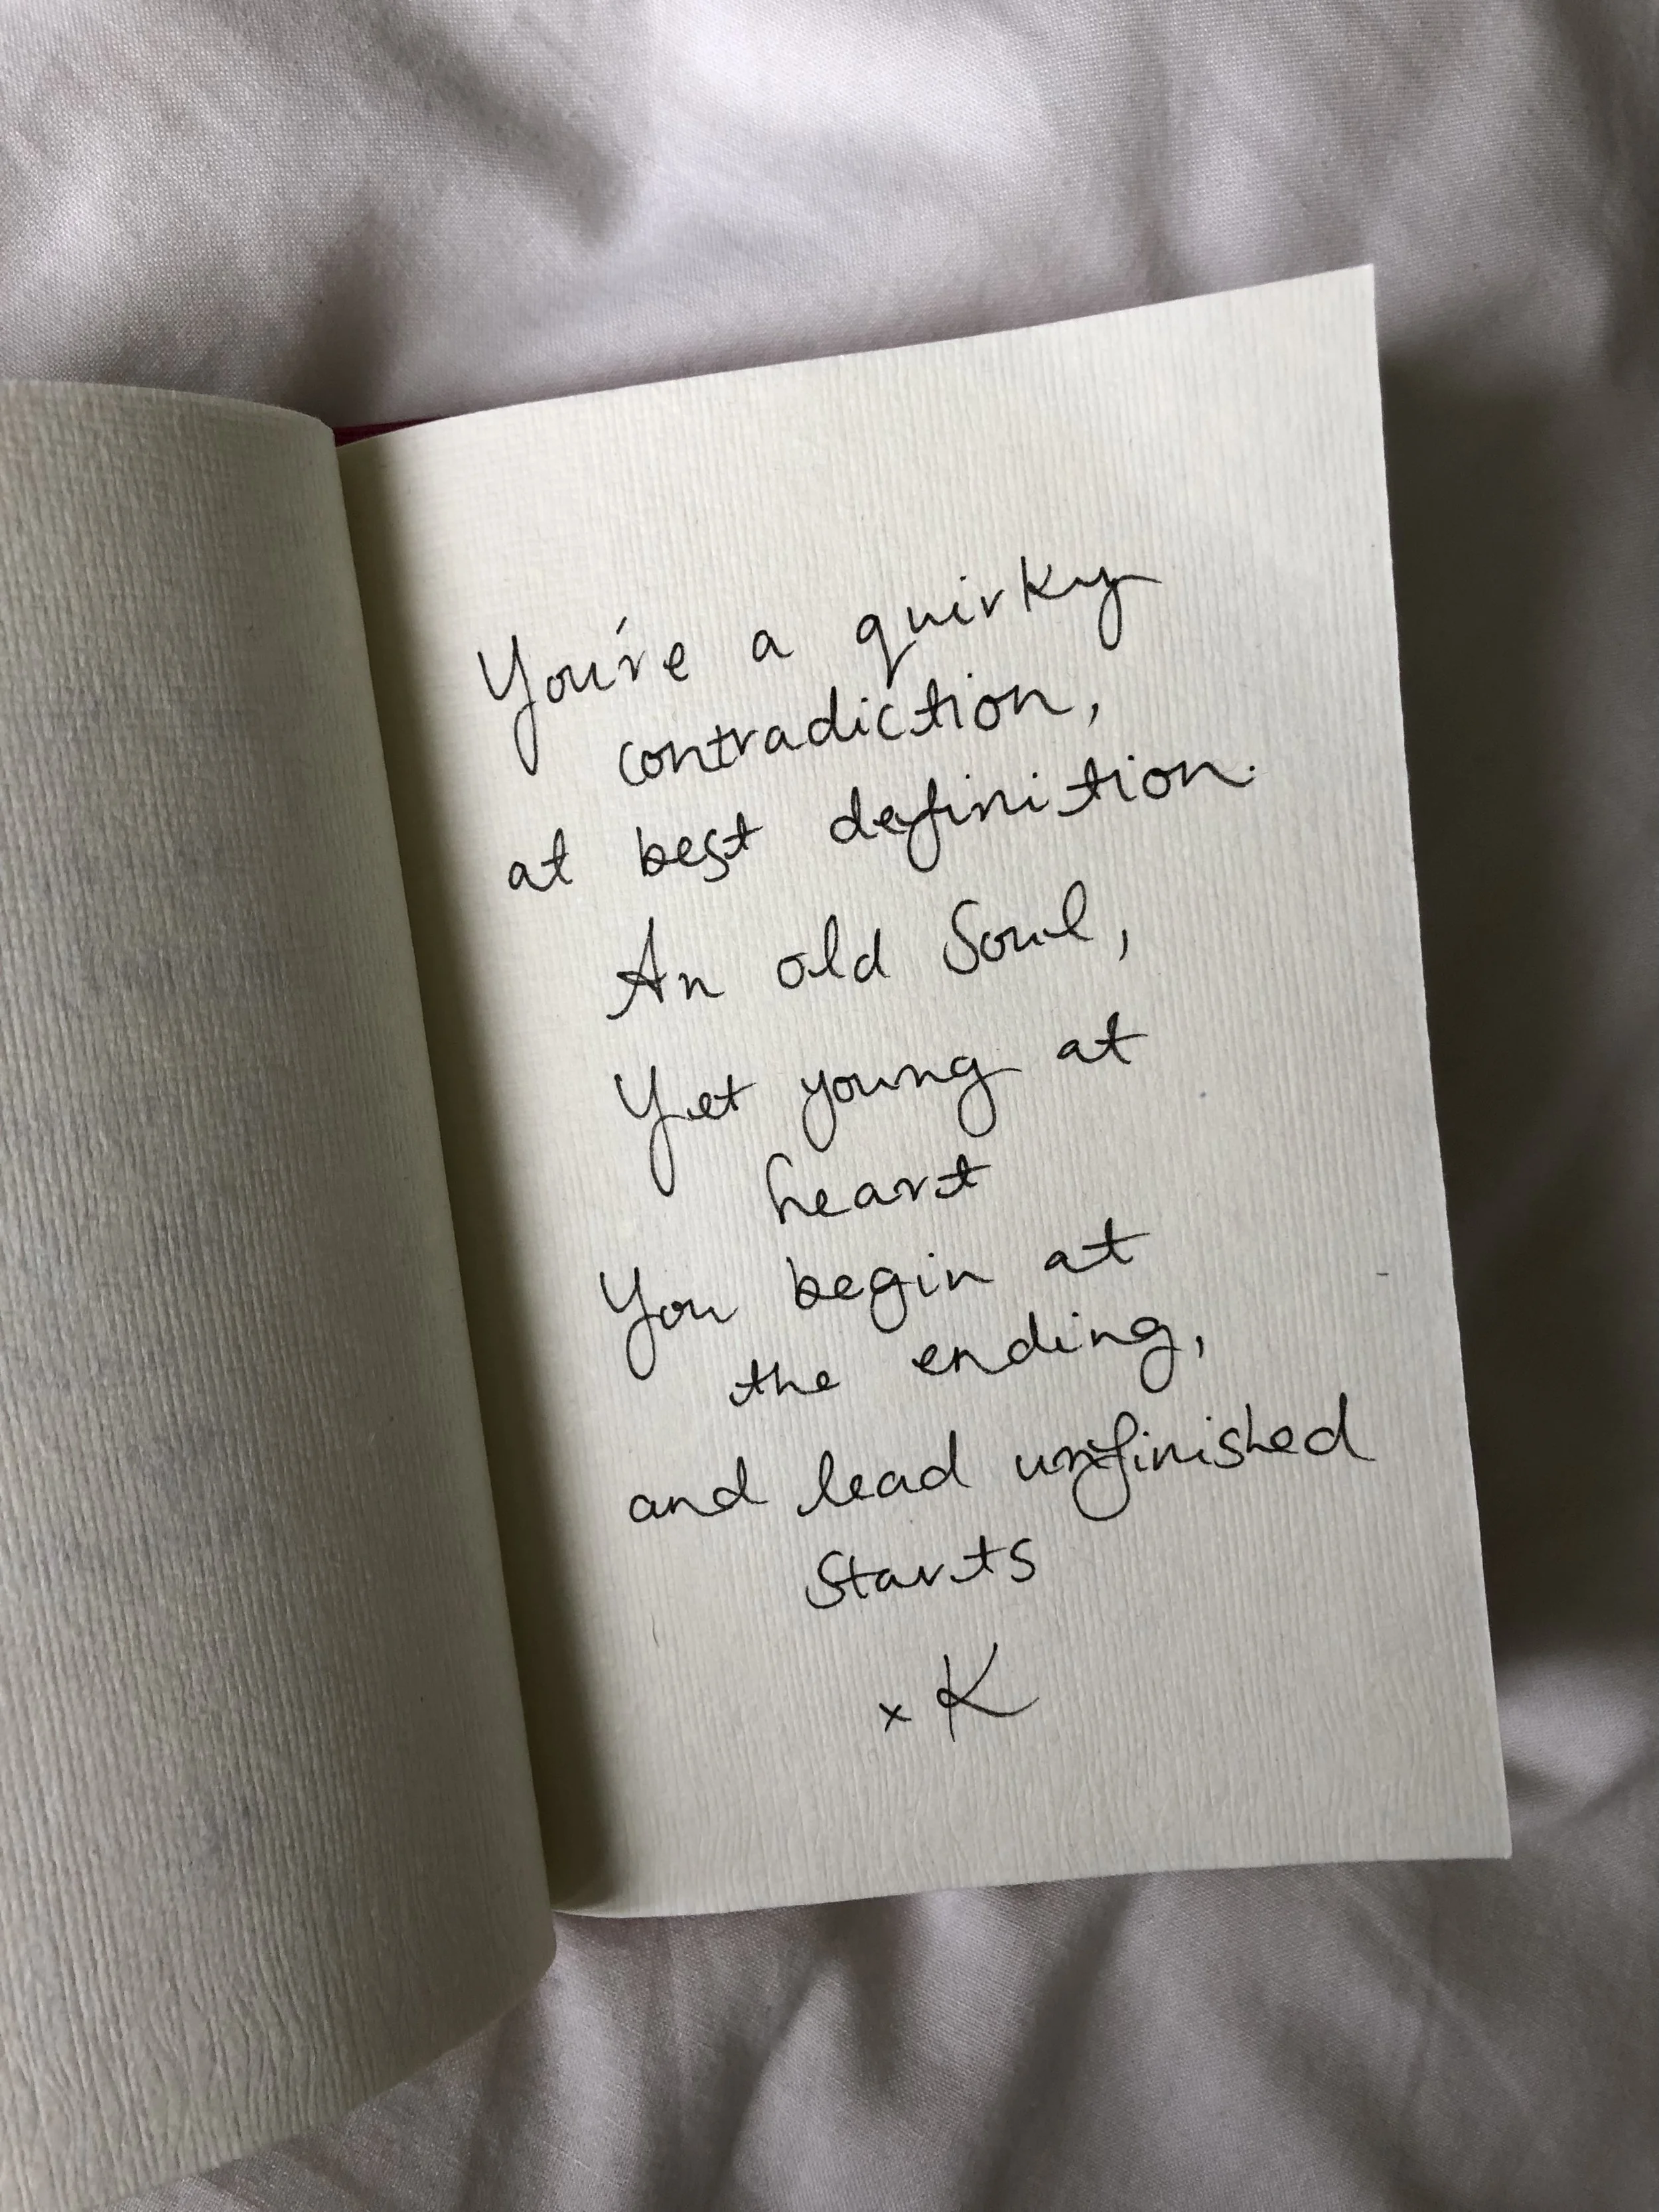 You're a quirky
contradiction,
at best definition.
An old Soul,
Yet young at
heart
You begin at
the ending,
and lead unfinished
Starts
x K